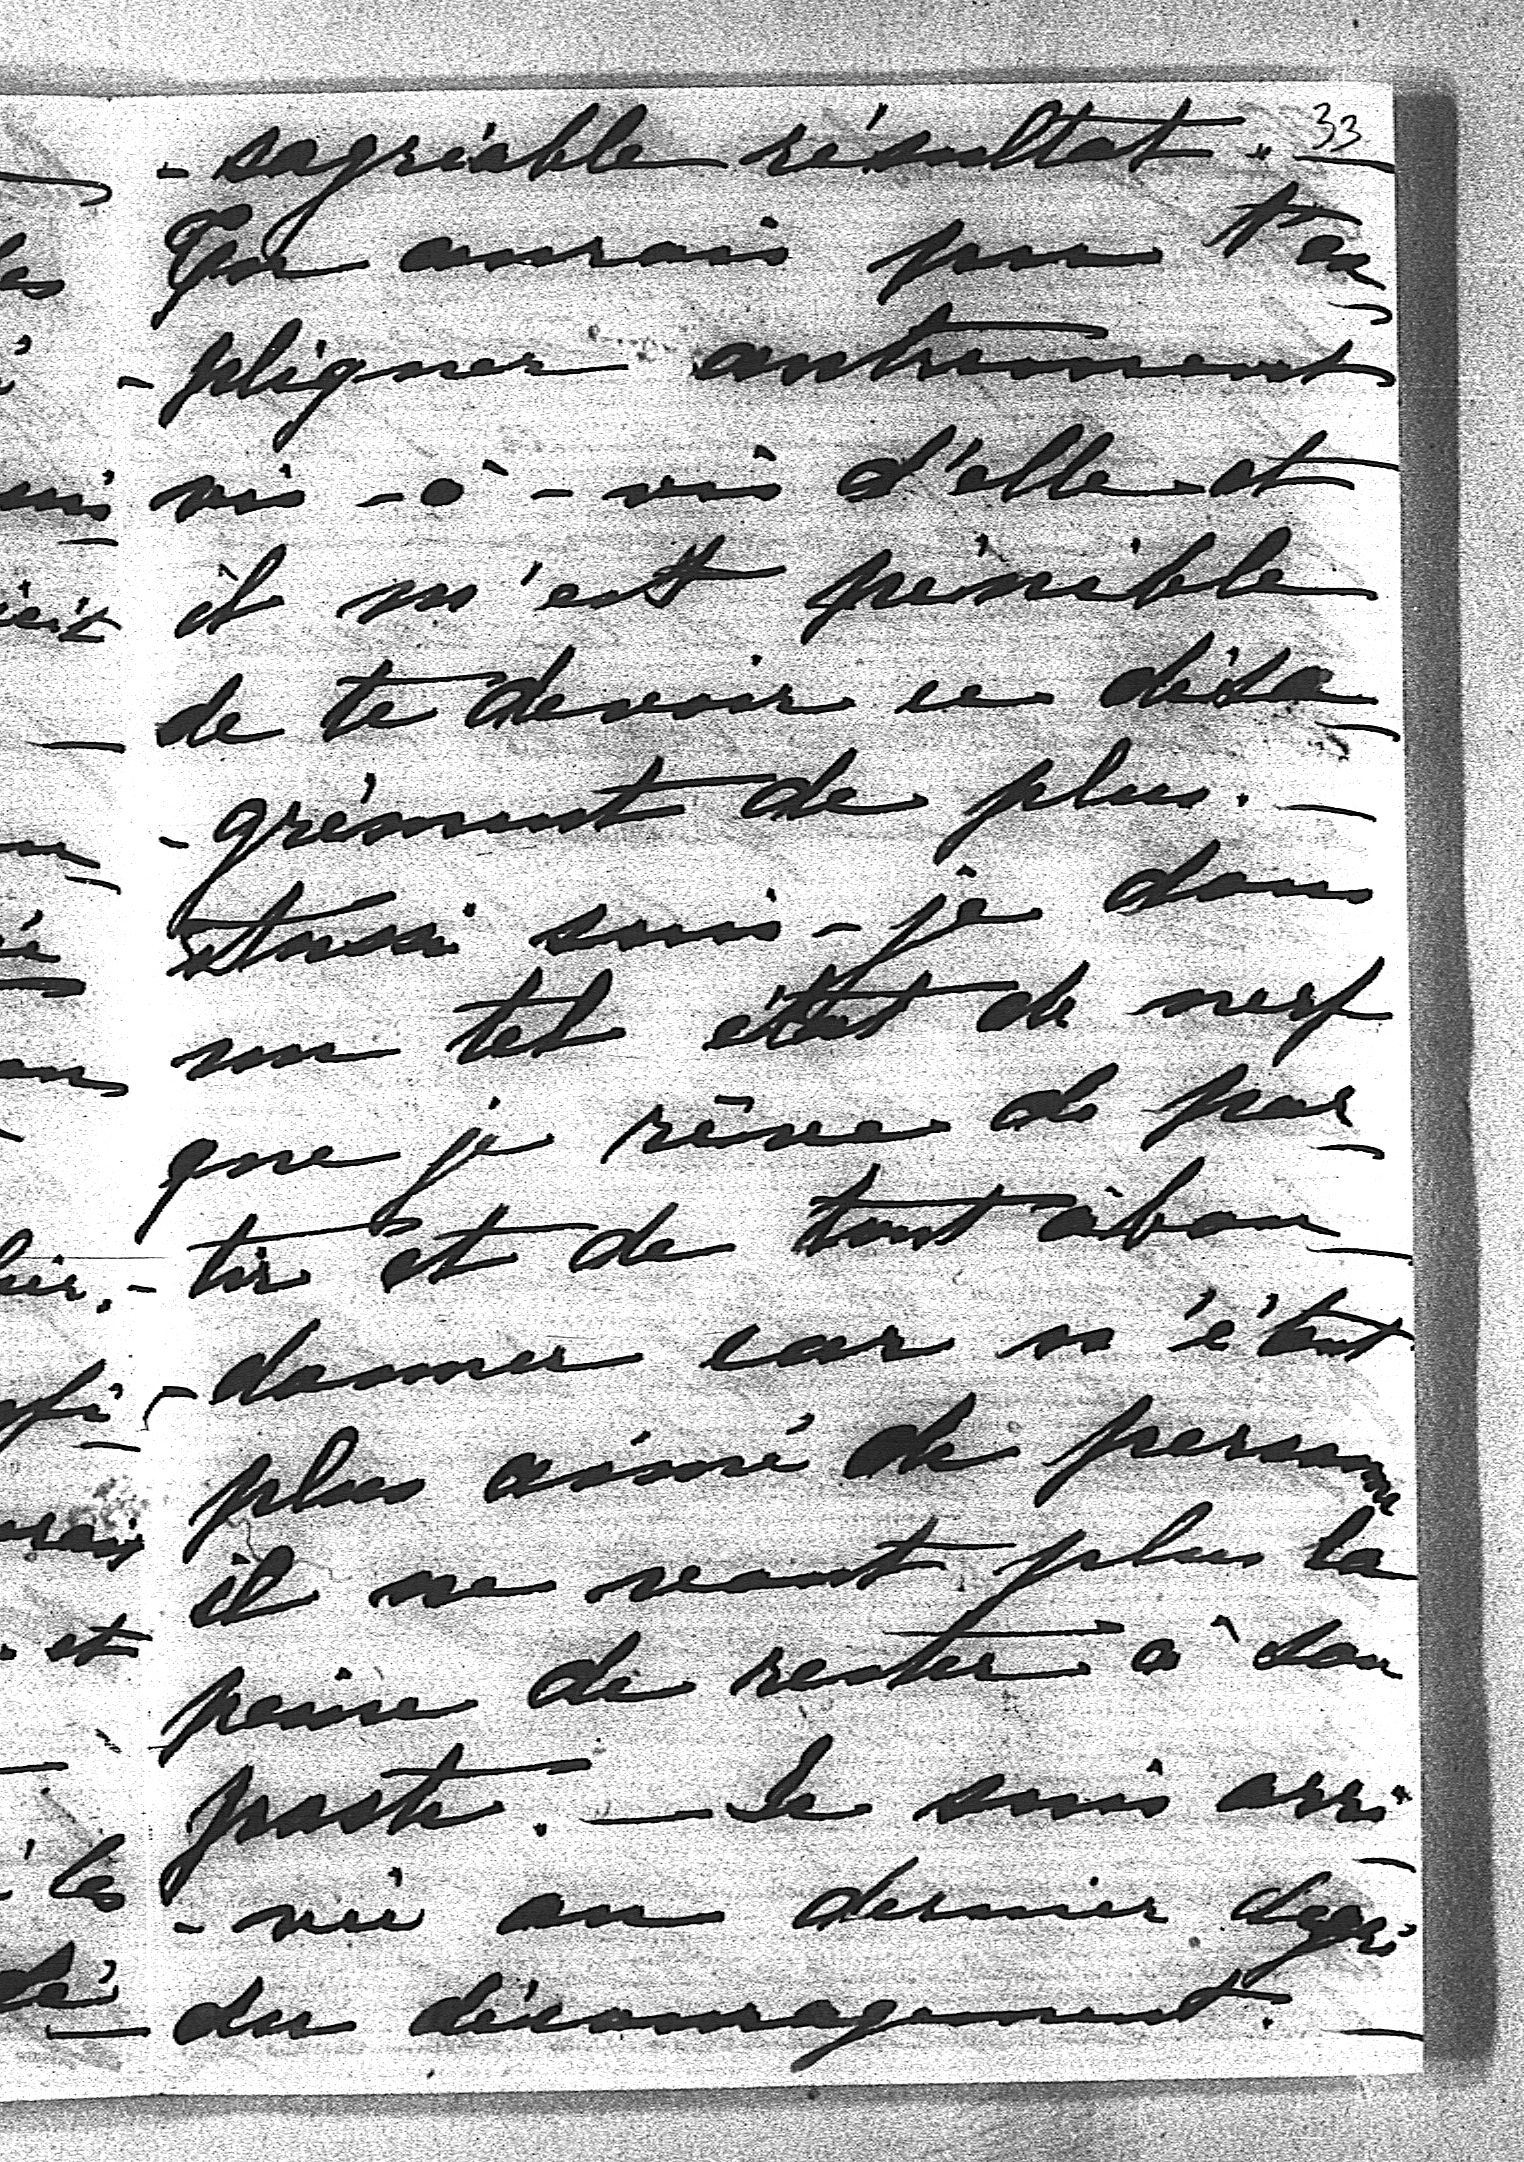 33
-sagréable résultat. —
Tu aurais pu t'ex-
-pliquer autrement
vis-à-vis d'elle et
il m'est pénible
de te devoir ce désa-
-grément de plus. —
Aussi suis-je dans
un tel état de nerf
que je rêve de par-
-tir et de tout aban-
-donner car n'étant
plus aimé de personne
il ne vaut plus la
peine de rester à son
poste. — Je suis arri-
-vé au dernier degré
du découragement. —